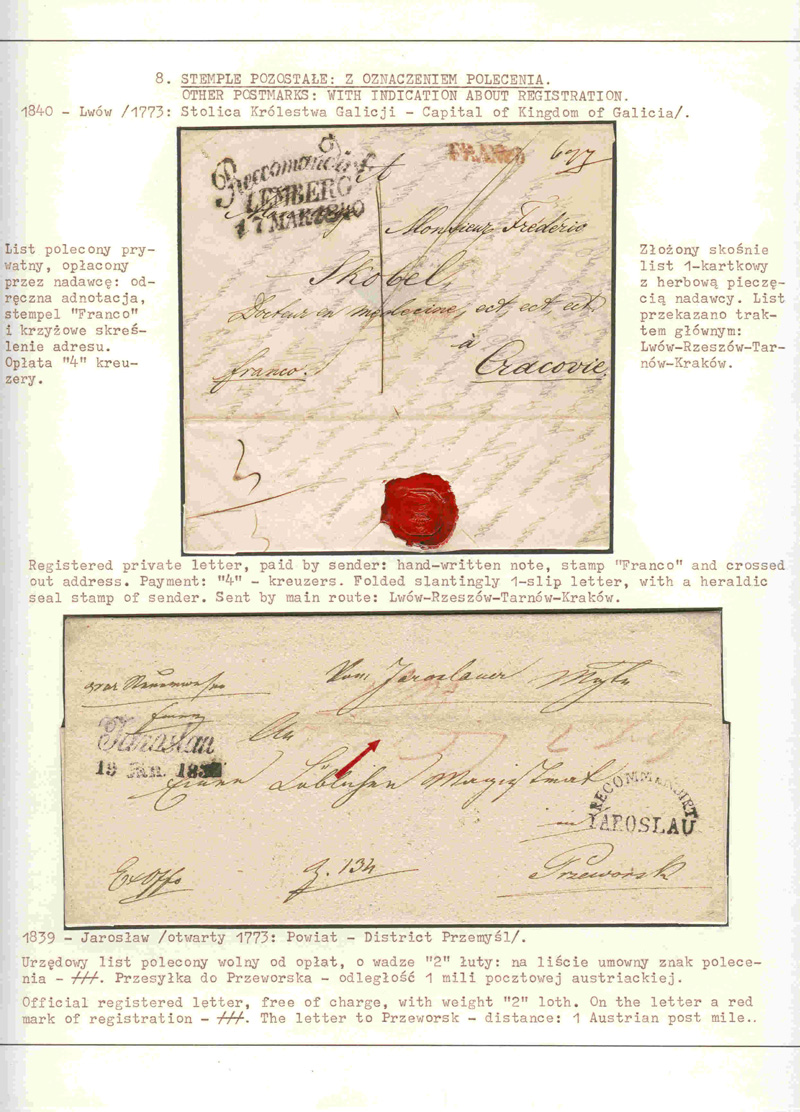 8. STEMPLE POZOSTAŁE: Z OZNACZENIEM POLECENIA.
OTHER POSTMARKS: WITH INDICATION ABOUT REGISTRATION.
1840 - Lwów /1773: Stolica Królestwa Galicji - Capital of Kingdom of Galicia/.
LEMBERG
17 MAR 1840
FRANCO
Monsieur Fréderic
Skobel,
Docteur en medecine, ect, ect, ect.
à
Cracovie.
franco.
List polecony pry-
watny, opłacony
przez nadawcę: od-
ręczna adnotacja,
stempel "Franco"
i krzyżowe skreś-
lenie adresu.
Opłata "4" kreu-
zery.
Złożony skośnie
list 1-kartkowy
z herbową pieczę-
cią nadawcy. List
przekazano trak-
tem głównym:
Lwów-Rzeszów-Tar-
nów-Kraków.
Registered private letter, paid by sender: hand-written note, stamp "Franco" and crossed
out address. Payment: "4" - kreuzers. Folded slantingly 1-slip letter, with a heraldic
seal stamp of sender. Sent by main route: Lwów-Rzeszów-Tarnów-Kraków.
Vom Jaroslauer
An
Jaroslau
19 Jän. 183
Löblichen Magistrat
in
RECOMMENDIRT
IAROSLAU
Przeworsk
Ex Offo
Z. 134
1839 - Jarosław /otwarty 1773: Powiat - District Przemyśl/.
Urzędowy list polecony wolny od opłat, o wadze "2" łuty: na liście umowny znak polece-
nia - ///. Przesyłka do Przeworska - odległość 1 mili pocztowej austriackiej.
Official registered letter, free of charge, with weight "2" loth. On the letter a red
mark of registration - ///. The letter to Przeworsk - distance: 1 Austrian post mile..